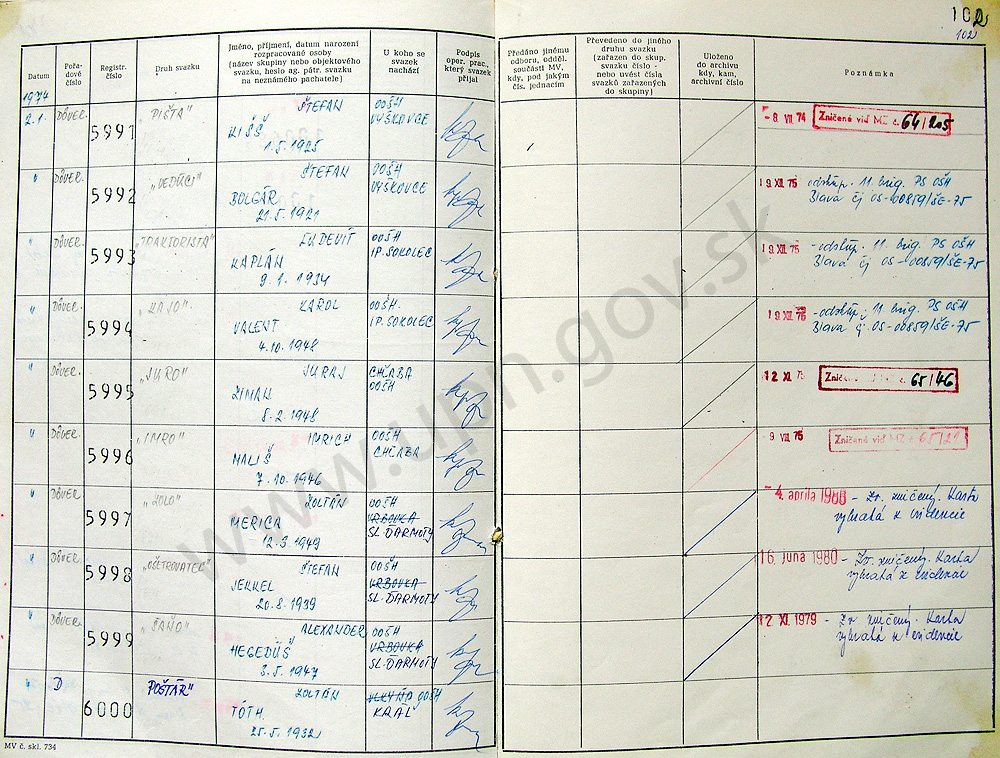 102
102
Datum
Pořa-
dové
číslo
Registr.
číslo
Druh svazku
Jméno, příjmení, datum narození
rozpracované osoby
(název skupiny nebo objektového
svazku, heslo ag. pátr. svazku
na neznámého pachatele)
U koho se
svazek
nachází
Podpis
oper. prac.,
který svazek
přijal
Předáno jinému
odboru, odděl.
součásti MV,
kdy, pod jakým
čís. jednacím
Převedeno do jiného
druhu svazku
(zařazen do skup.
svazku číslo -
nebo uvést čísla
svazků zařazených
do skupiny)
Uloženo
do archivu
kdy, kam,
archivní číslo
Poznámka
1974
2.1. DÔVER. 5991 "PIŠTA" ŠTEFAN OOŠH
KIŠŠ VYŠKOVCE
1.5.1925
- 8 VII. 74 Zničené viď MZ č. 64/205
" DÔVER. 5992 "VEDÚCI" ŠTEFAN OOŠH
BOLGÁR VYŠKOVCE
21.5.1921
19. XII. 75 odstúp. 11. brig. PS OŠH
Blava čj OS-00859/ŠE-75
" DÔVER. 5993 "TRAKTORISTA" ĽUDEVÍT OOŠH
KAPLÁN IP. SOKOLEC
9.1.1934
19. XII. 75 - odstúp. 11. brig. PS OŠH
Blava čj OS-00859/ŠE-75
" DÔVER. 5994 KAROL OOŠH.
VALENT IP. SOKOLEC
4.10.1948
19. XII. 75 - odstúp. 11. brig. PS OŠH
Blava čj OS-00859/ŠE-75
" DÔVER. 5995 "JURO" JURAJ CHĽABA
ZIMAN OOŠH
5.2.1948
12. XI. 75 Zničené č. 65/46
" DÔVER. 5996 "IMRO" IMRICH OOŠH
MALIŠ CHĽABA
7.10.1946
- 9 VIII. 75 Zničené viď MZ č. 65/21
" DÔVER. 5997 "ZOLO" ZOLTÁN OOŠH
MERICA VRBOVKA
12.3.1949 SL. ĎARMOTY
- 4. apríla 1980 - Zv. zničený. Karta
vybratá z evidencie
" DÔVER. 5998 "OŠETROVATEĽ" ŠTEFAN OOŠH
JEKKEL VRBOVKA
20.8.1939 SL. ĎARMOTY
16. júna 1980 - Zv. zničený. Karta
vybratá z evidencie
" DÔVER. 5999 "ŠAŇO" ALEXANDER OOŠH
HEGEDÜŠ VRBOVKA
3.5.1947 SL. ĎARMOTY
12. XI. 1979 - Zv. zničený. Karta
vybratá z evidencie
" D 6000 POŠTÁR" ZOLTÁN OOŠH
TÓTH. KRÁĽ
25.5.1932
MV č. skl. 734
www.upn.gov.sk